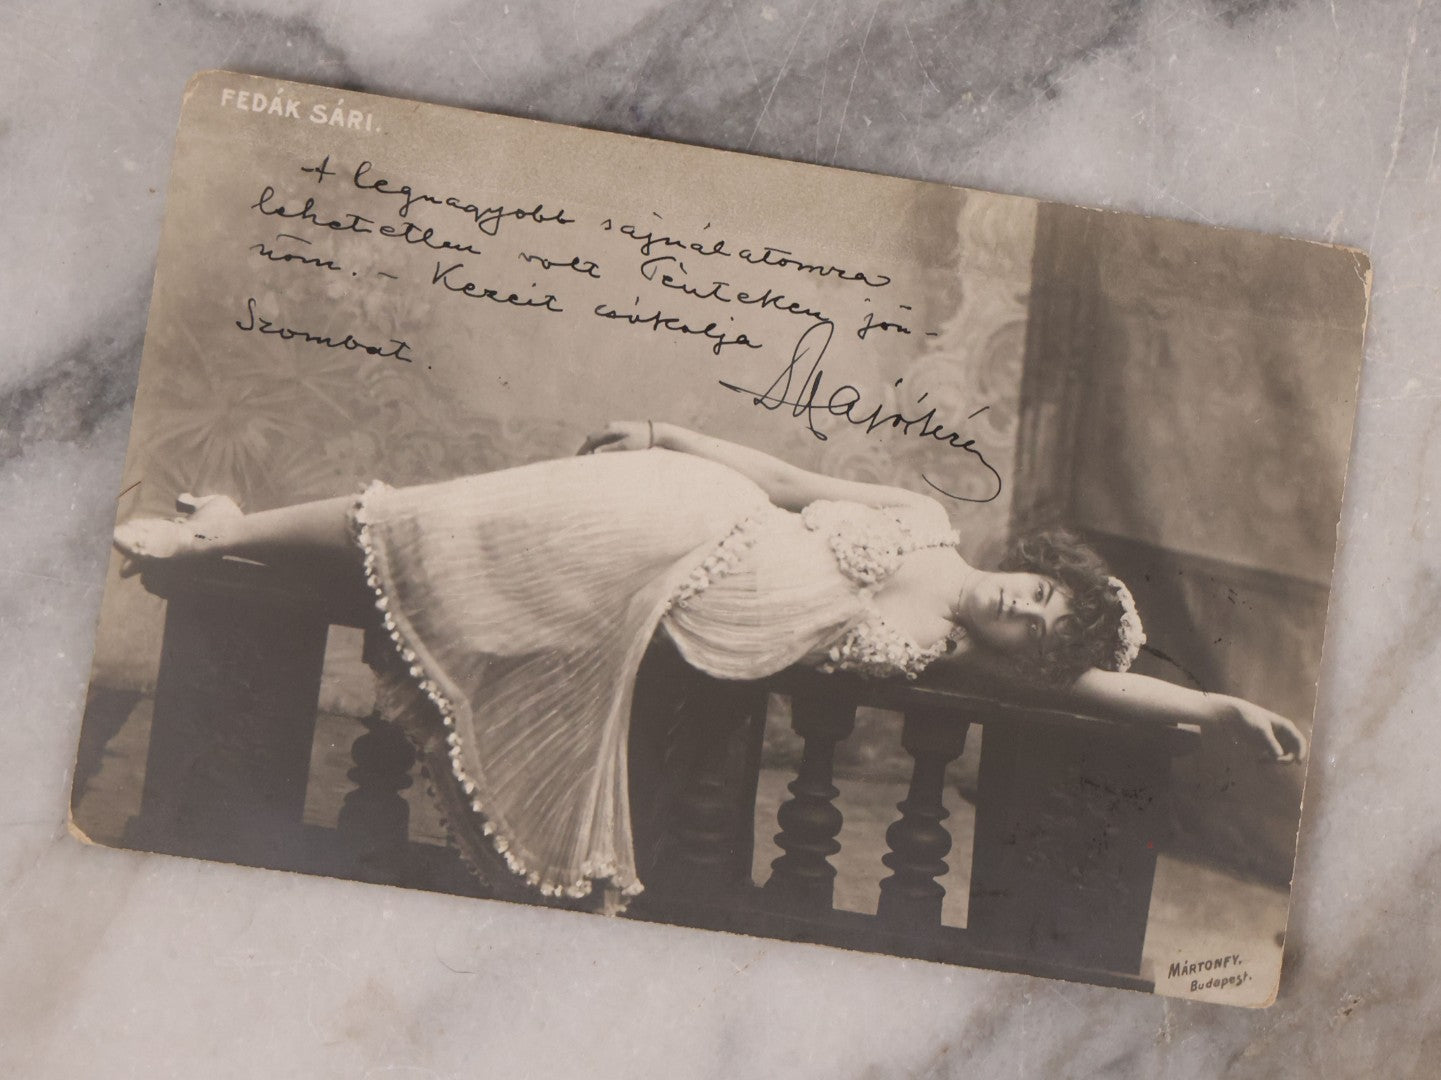 FEDÁK SÁRI.
A legnagyobb sajnálatomra
lehetetlen volt Pénteken jön-
nöm. - Kezeit csókolja
Szombat.
MÁRTONFY.
Budapest.